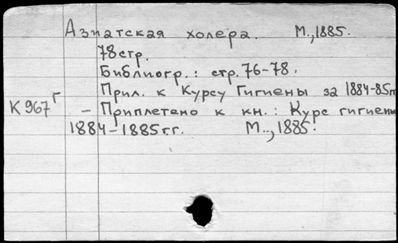 Азиатская холера. М., 1885.
78 стр.
Библиогр.: стр. 76-78.
Прил. к Курсу Гигиены за 1884-85гг
К 967г – Приплетено к кн.: Курс гигиены
1884-1885гг. М., 1885.